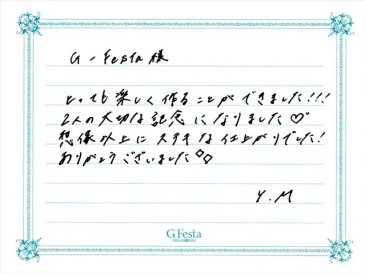 G-Festa様
とっても楽しく作ることができました!!!
2人の大切な記念になりました♡
想像以上にステキな仕上がりでした!
ありがとうございました◇◇
Y.M
G.Festa
DIAMONDS